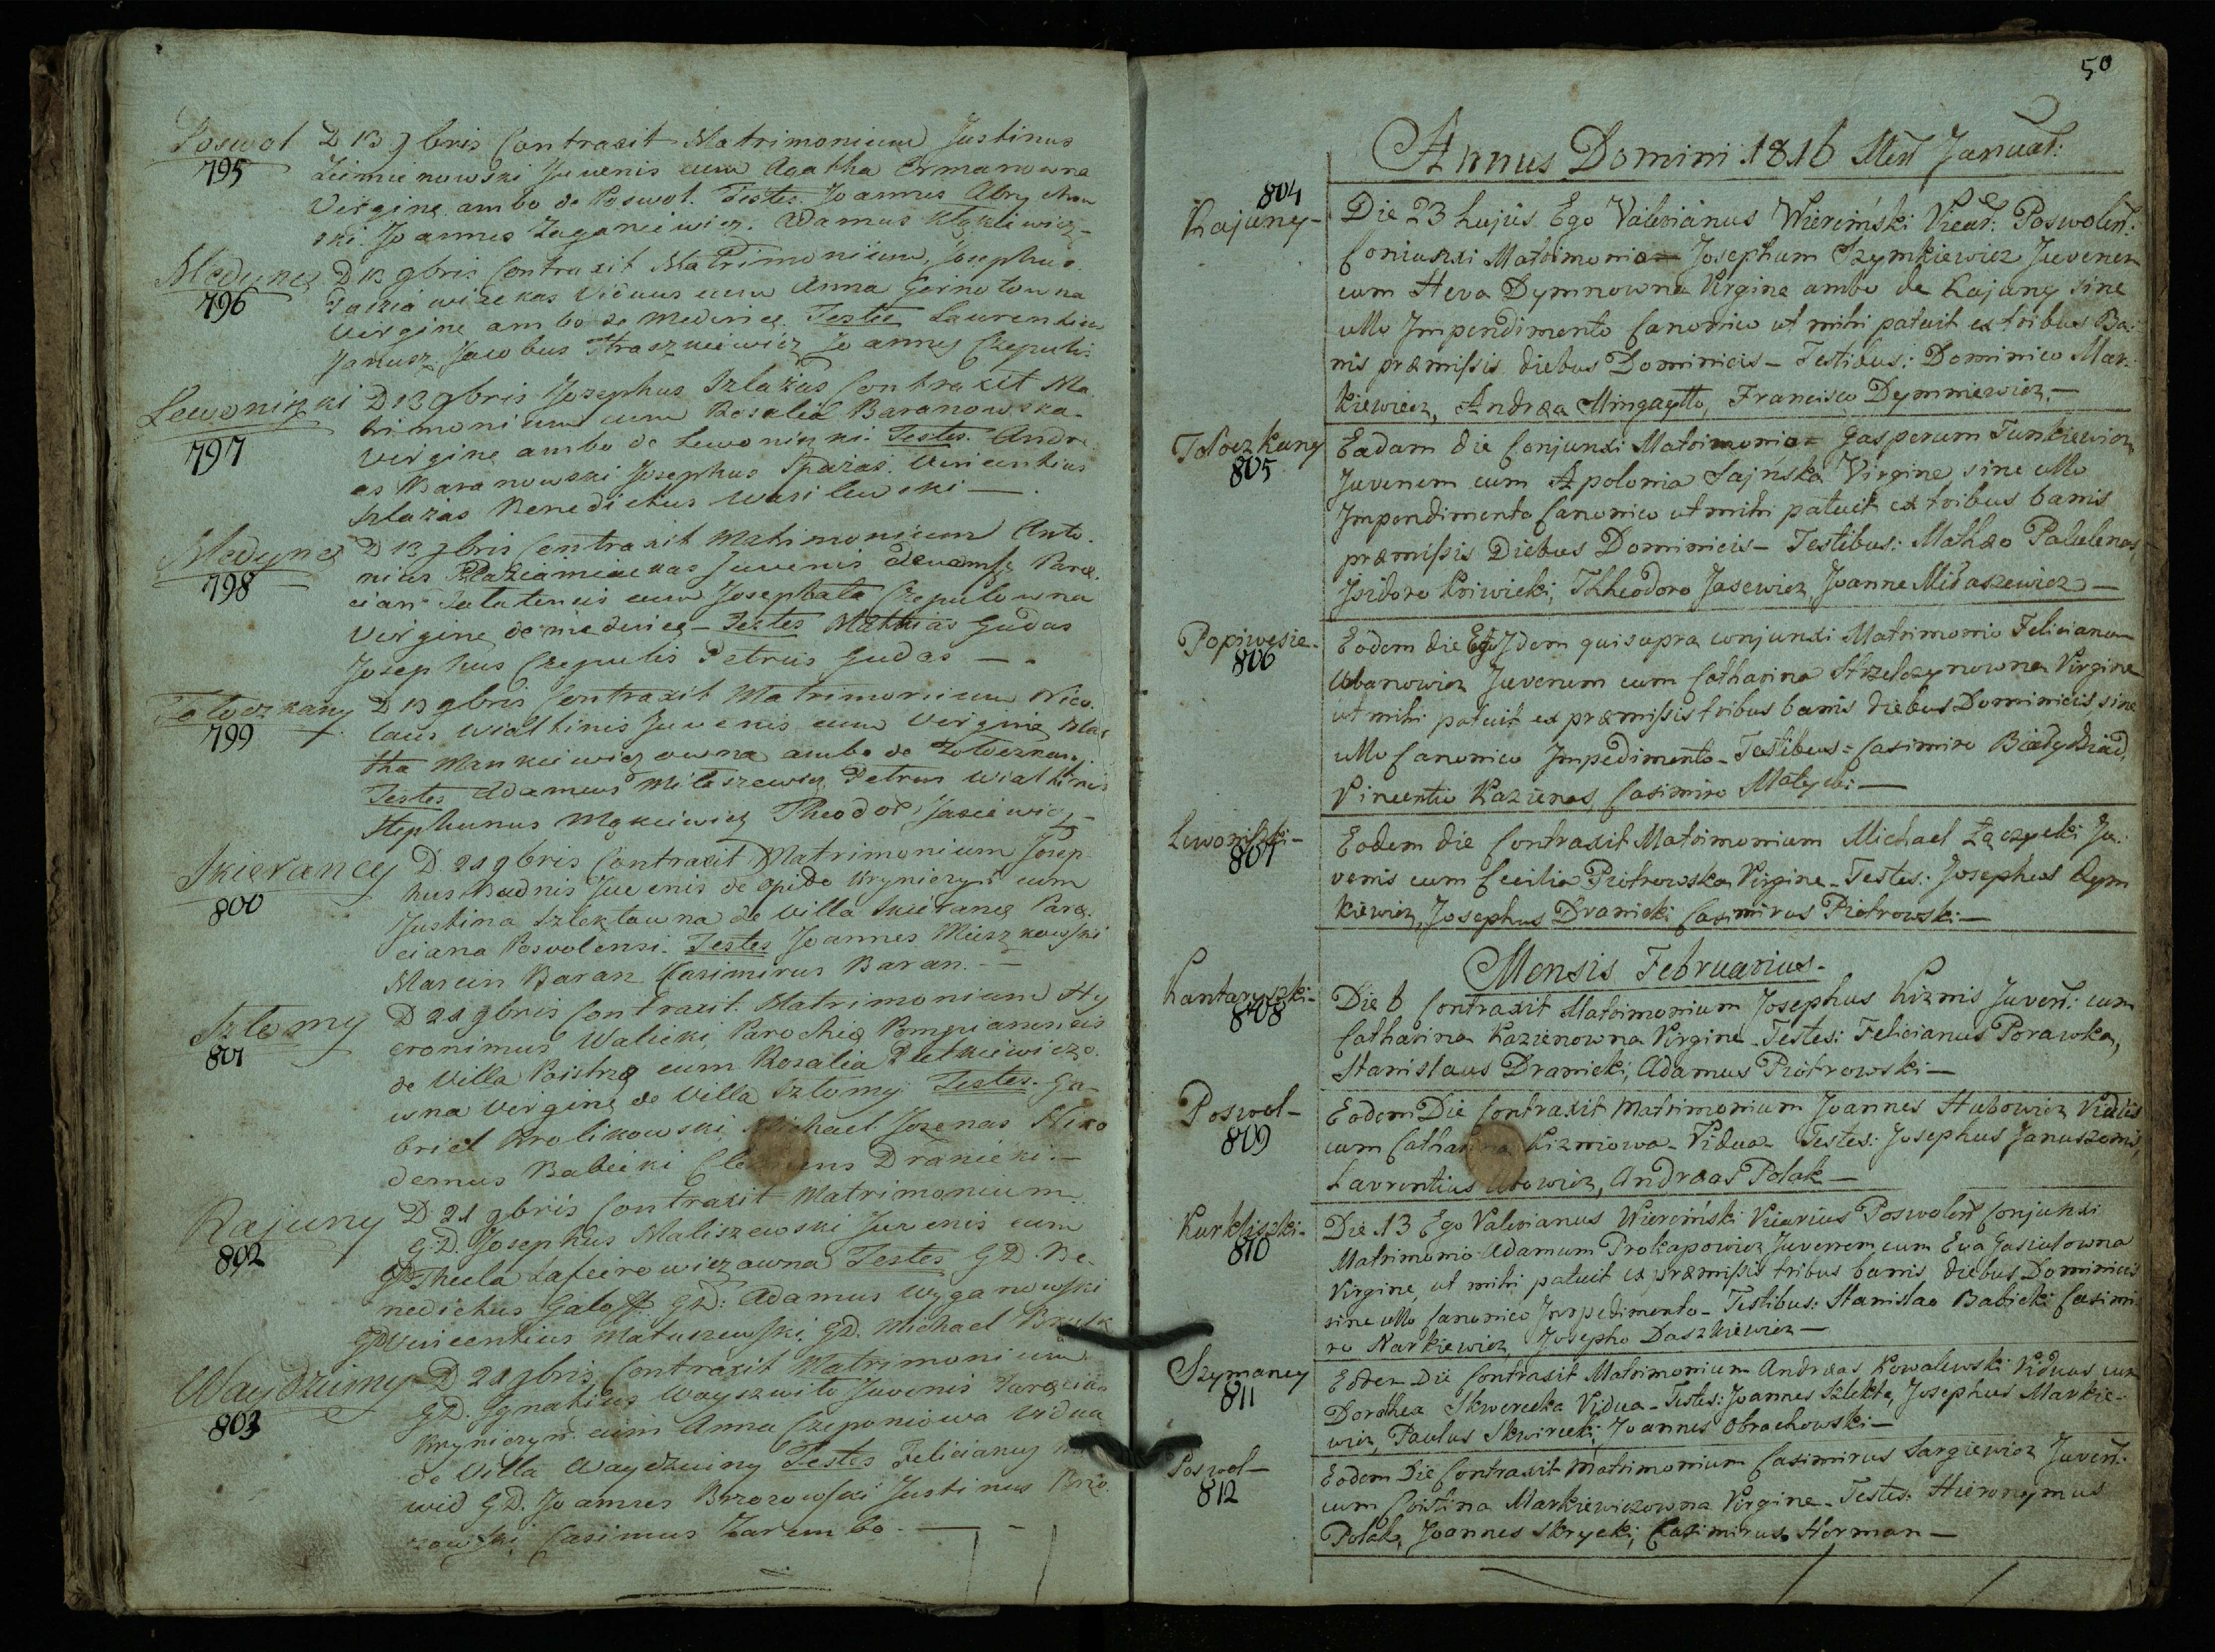 Poswol
795
D 13 9bris Contraxit Matrimonium Justinus
Juvenis cum Agatha Ermanowna
Virgine ambo de Poswol. Testes Joannes
ski. Joannes Zaganiewicz. Adamus
796
D 13 9bris Contraxit Matrimonium, Josephus
Viduus cum Anna
Virgine ambo de Testes Laurentius
Janusz. Jacobus Straszkiewicz Joannes Czepulis
Lewoniszki
797
D 13 9bris Josephus Szlażas Contraxit Ma-
trimonium cum Rosalia Baranowska
Virgine ambo de Lewoniszki. Testes. Andre-
as Baranowski Josephus Vincentius
Szlażas Benedictus Wasilewski —.
798
D 13 9bris Contraxit Matrimonium Anto-
nius Juvenis Parę-
cian cum Josephata Czepulowna
Virgine de — Testes Matthias Gudas
Josephus Czepulis Petrus Gudas — .
Toloczkany
799
D 13 9bris Contraxit Matrimonium Nico-
laus Juvenis cum Virgine Mar
tha Mankiewiczowna ambo de
Testes Adamus Milaszewicz Petrus
Stephanus Theodor Jasiewicz —
Skierancy
800
D 21 9bris Contraxit Matrimonium Josep
hus Budnis Juvenis de cum
Justina Szlektowna de Villa Parę-
ciana Posvolensi. Testes Joannes Mieszkowski
Marcin Baran Casimirus Baran. —
Szlomy
801
D 21 9bris Contraxit Matrimonium Hy
eronimus Walicki, Parochię
de Villa cum Rosalia
wna Virgine de Villa Szlomy Testes. Ga-
briel Krolikowski Michael Nico
demus Babicki Clemens Dranicki. —
Rajuny
802
D 21 9bris Contraxit Matrimonium.
G.D. Josephus Maliszewski Juvenis cum
GD Thecla Testes G D. Be-
nedictus GD: Adamus Wyganowski
GD Vincentius Matuszewski GD. Michael
Waydziuny
803
D 21 9bris Contraxit Matrimonium
GD. Ignatius Juvenis
cum Anna Czeponiowa Vidua
de Villa Waydziuny Testes Felicianus
wid G D. Joannes Brzozowski Justinus Brzo-
zowski Casimus Zarembo. —
50
Annus Domini 1816 Men Januar:
804
Rajuny -
Die 23 hujus Ego Valerianus Wierciński Vicar: Poswolen:
Conjunxi Matrimonio Josephum Szymkiewicz Juvenem
cum Heva Dymnowna Virgine ambo de Rajuny sine
ullo Impendimento Canonico ut mihi patuit ex tribus Ba-
nis præmissis diebus Dominicis - Testibus: Dominico Mar-
kiewicz, Andræa Mingaytto, Francisco Dymniewicz. —
Toloczkany
805
Eadam die Conjunxi Matrimonio Gasperum Tunkiewicz
Juvenem cum Apolonia Sajńska Virgine, sine ullo
Impendimento Canonico ut mihi patuit ex tribus banis
præmissis Diebus Dominicis - Testibus: Mathæo
Isidoro Kriwicki, Thheodoro Jasewicz, Joanne Milaszewicz —
Popiwesie -
806
Eodem die Ego Idem qui supra conjunxi Matrimonio Felicianum
Urbanowicz Juvenem cum Catharina Strzelczynowna Virgine
ut mihi patuit ex præmissis tribus banis diebus Dominicis, sine
ullo Canonico Impedimento - Testibus: Casimiro
Vincentio Kazienas, Casimiro Malycki —
Lewoniszki -
807
Eodem die Contraxit Matrimonium Michael Łączycki Ju-
venis cum Cecilia Piotrowska Virgine - Testes: Josephus Rym
kiewicz, Josephus Dranicki Casimirus Piotrowski —
Mensis Februarius -
Kantaryszki -
808
Die 6 Contraxit Matrimonium Josephus Kizmis Juven: cum
Catharina Kazienowna Virgine - Testes: Felicianus Porawka,
Stanislaus Dranicki, Adamus Piotrowski —
Poswol -
809
Eodem Die Contraxit Matrimonium Joannes Hubowicz Viduus
cum Catharina Kizmiowa - Vidua - Testes: Josephus Januszonis,
Lavrentius Andræas Polak —
Kurkliszki -
810
Die 13 Ego Valerianus Wierciński Vicarius Poswolen Conjunxi
Matrimonio Adamum Prokapowicz Juvenem cum Eva Gasiulowna
Virgine, ut mihi patuit ex præmissis tribus banis diebus Dominicis
sine ullo Canonico Impedimento - Testibus: Stanislao Babicki Casimi
ro Narkiewicz, Josepho Daszkiewicz —
Szymancy
811
Eodem Die Contraxit Matrimonium Andræas Kowalewski Viduus cum
Dorothea Skworecka Vidua - Testes: Joannes Szlekta, Josephus Markie-
wicz, Paulus Skwirecki, Joannes Obrachowski —
Poswol -
812
Eodem Die Contraxit Matrimonium Casimirus Sargiewicz Juven:
cum Cristina Markiewiczowna Virgine - Testes: Hieronymus
Polak, Joannes Skrycki, Casimirus Herman —